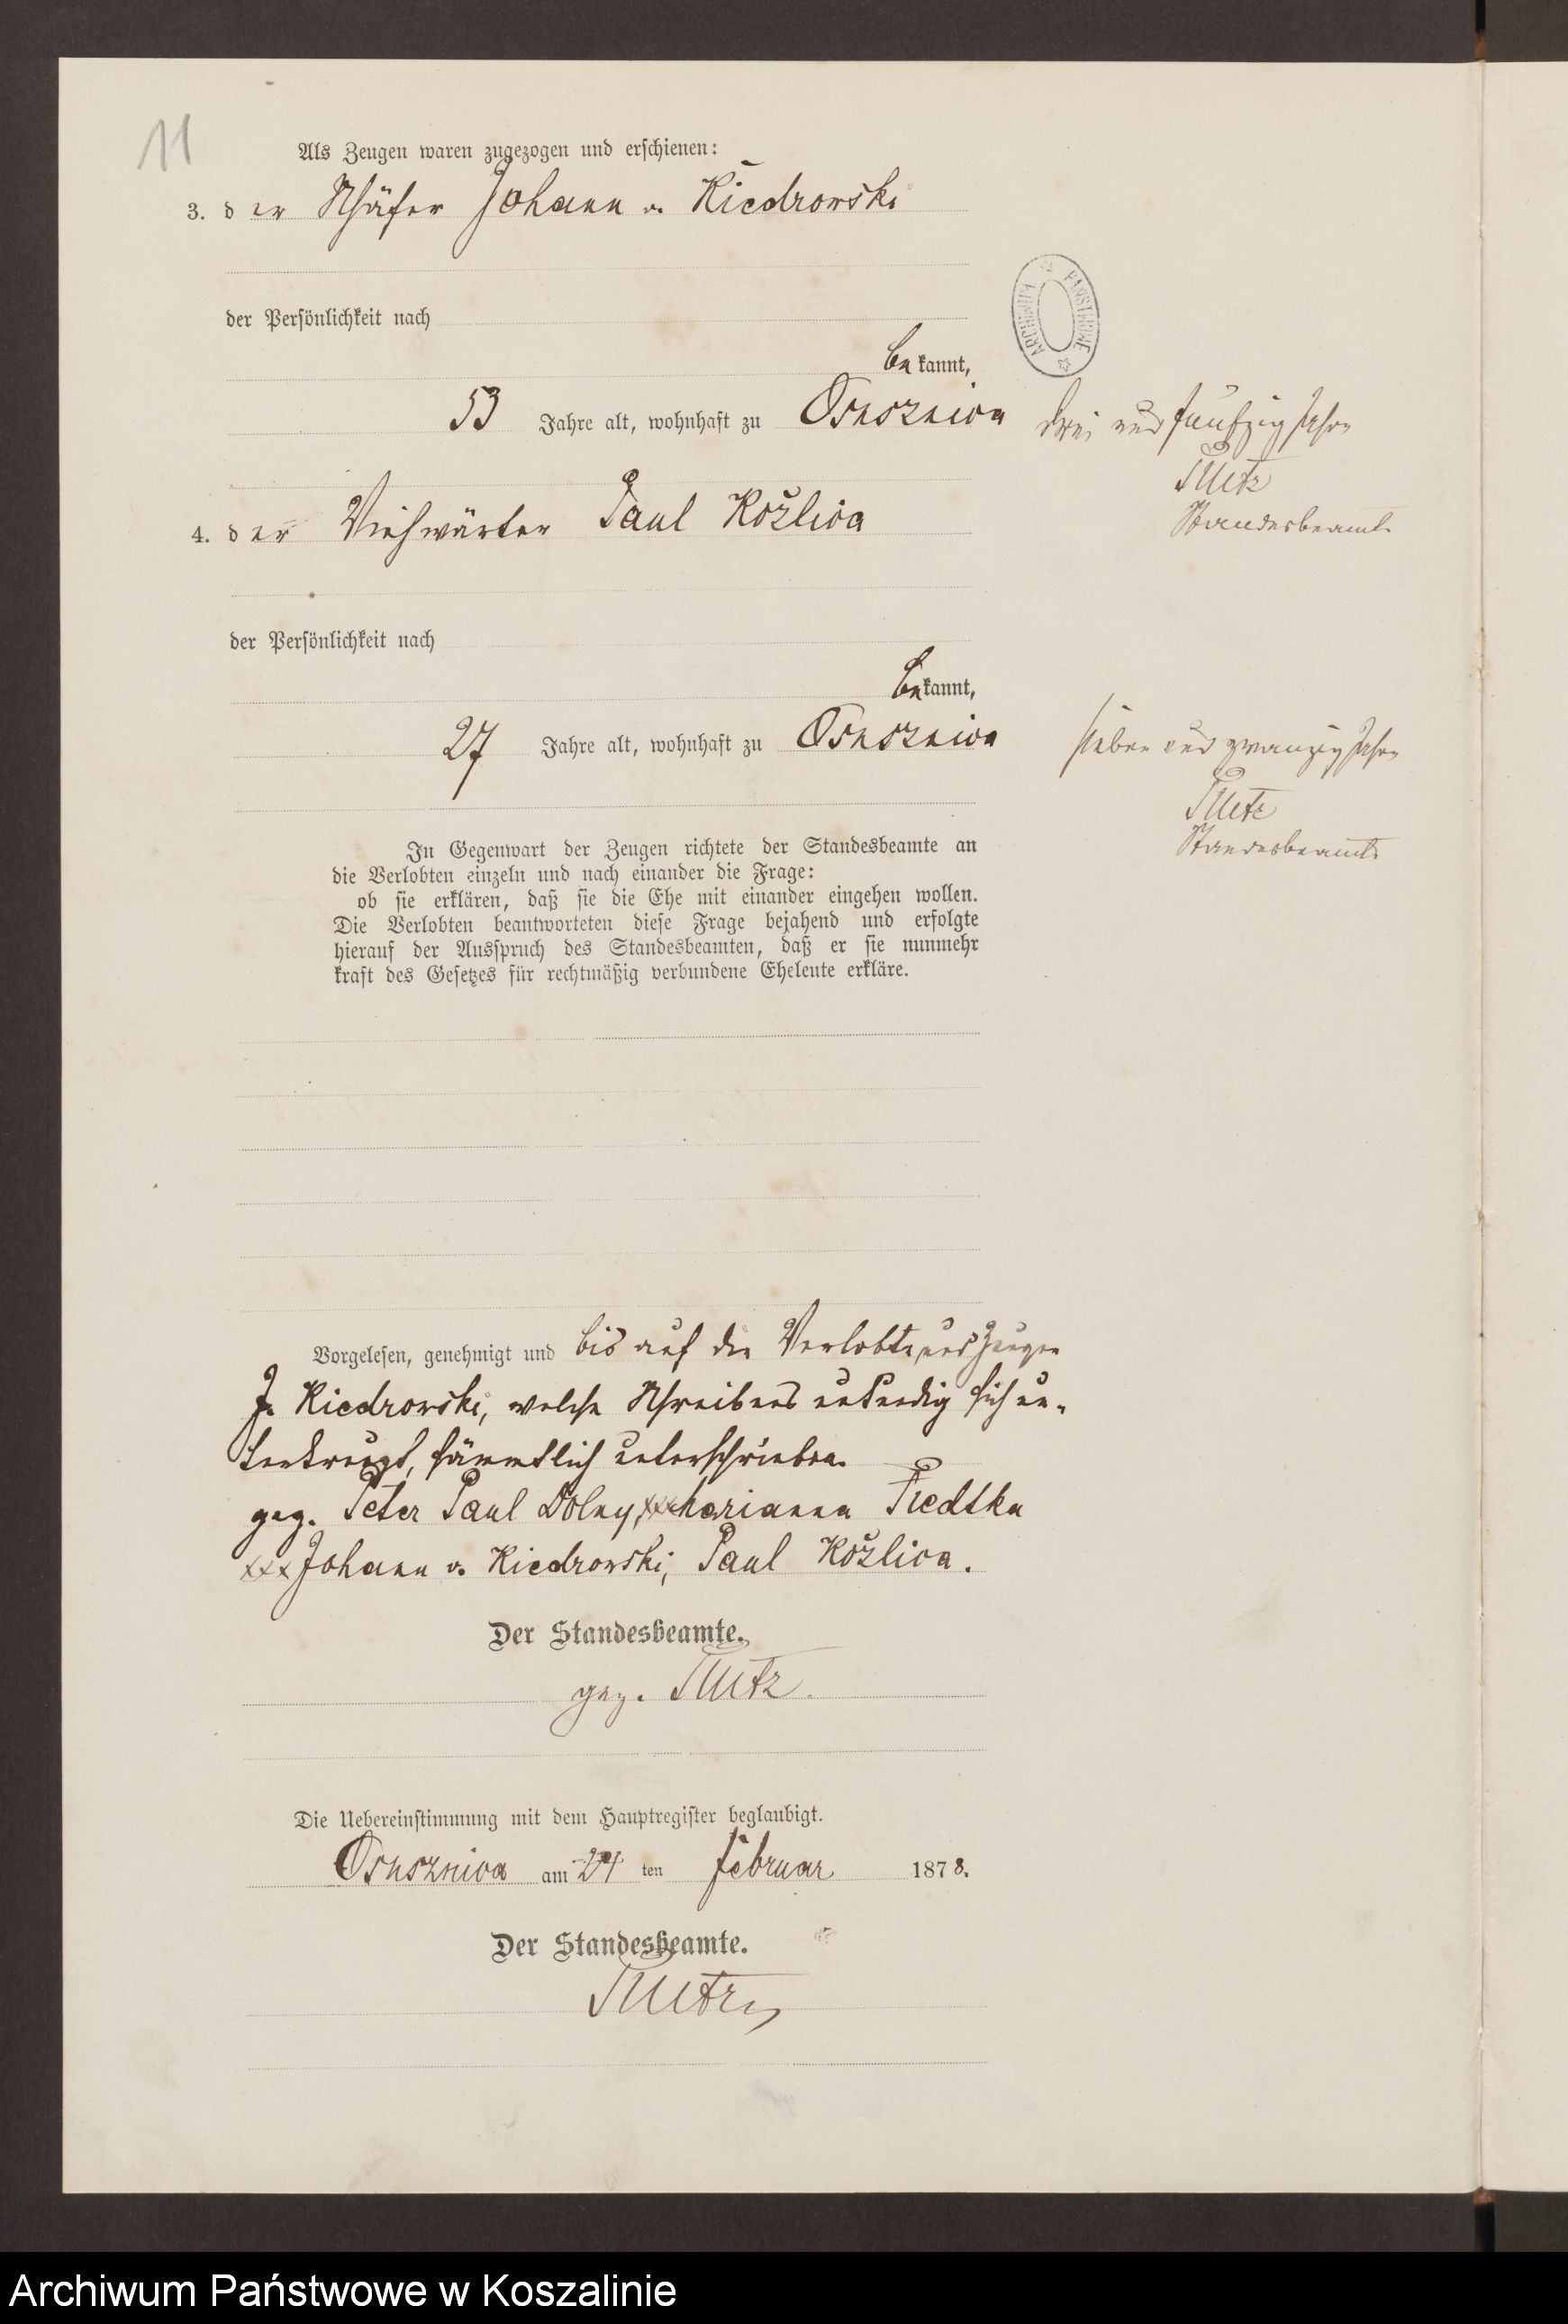 11
Als Zeugen waren zugezogen und erschienen:
3. der Schäfer Johann v. Kiedrowski
der Persönlichkeit nach
bekannt,
53 Jahre alt, wohnhaft zu Osusznica
drei und funfzig Jahre
Standesbeamte
4. der Viehwärter Paul Kožlica
der Persönlichkeit nach
bekannt,
27 Jahre alt, wohnhaft zu Osusznica
sieben und zwanzig Jahre
Standesbeamte
In Gegenwart der Zeugen richtete der Standesbeamte an
die Verlobten einzeln und nach einander die Frage:
ob sie erklären, daß sie die Ehe mit einander eingehen wollen.
Die Verlobten beantworteten diese Frage bejahend und erfolgte
hierauf der Ausspruch des Standesbeamten, daß er sie nunmehr
kraft des Gesetzes für rechtmäßig verbundene Eheleute erkläre.
Vorgelesen, genehmigt und bis auf die Verlobte, und Zeugen
J. Kiedrowski, welche Schreibens unkundig sich un-
terkreuzt, sämmtlich unterschrieben.
gez. Peter Paul Dolny, xxx Marianna Tiedtka
xxx Johann v. Kiedrowski, Paul Kožlica.
Der Standesbeamte.
gez.
Die Uebereinstimmung mit dem Hauptregister beglaubigt.
Osusznica am 24 ten Februar 1878.
Der Standesbeamte.
ARCHIWUM PAŃSTWOWE
Archiwum Państwowe w Koszalinie